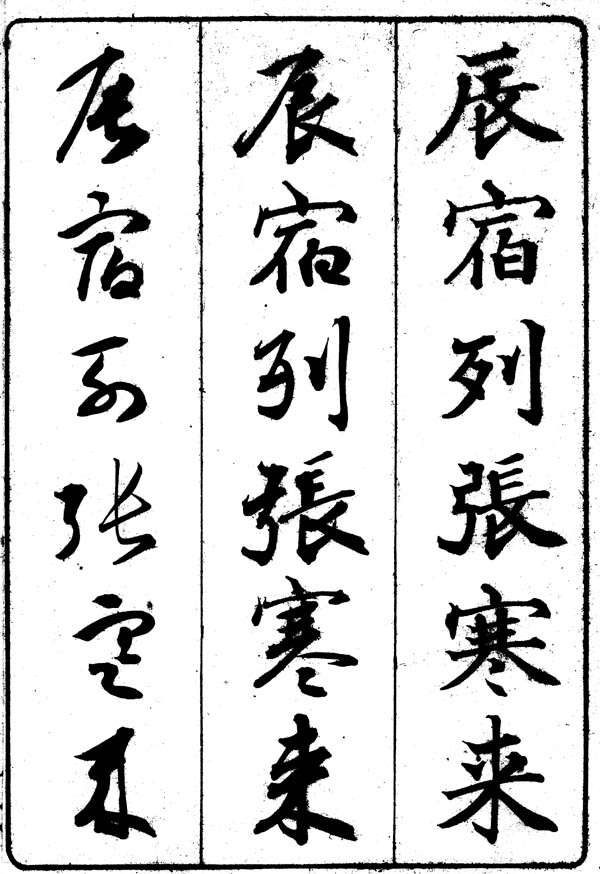 辰宿列張寒来
辰宿列張寒来
辰宿列张寒来